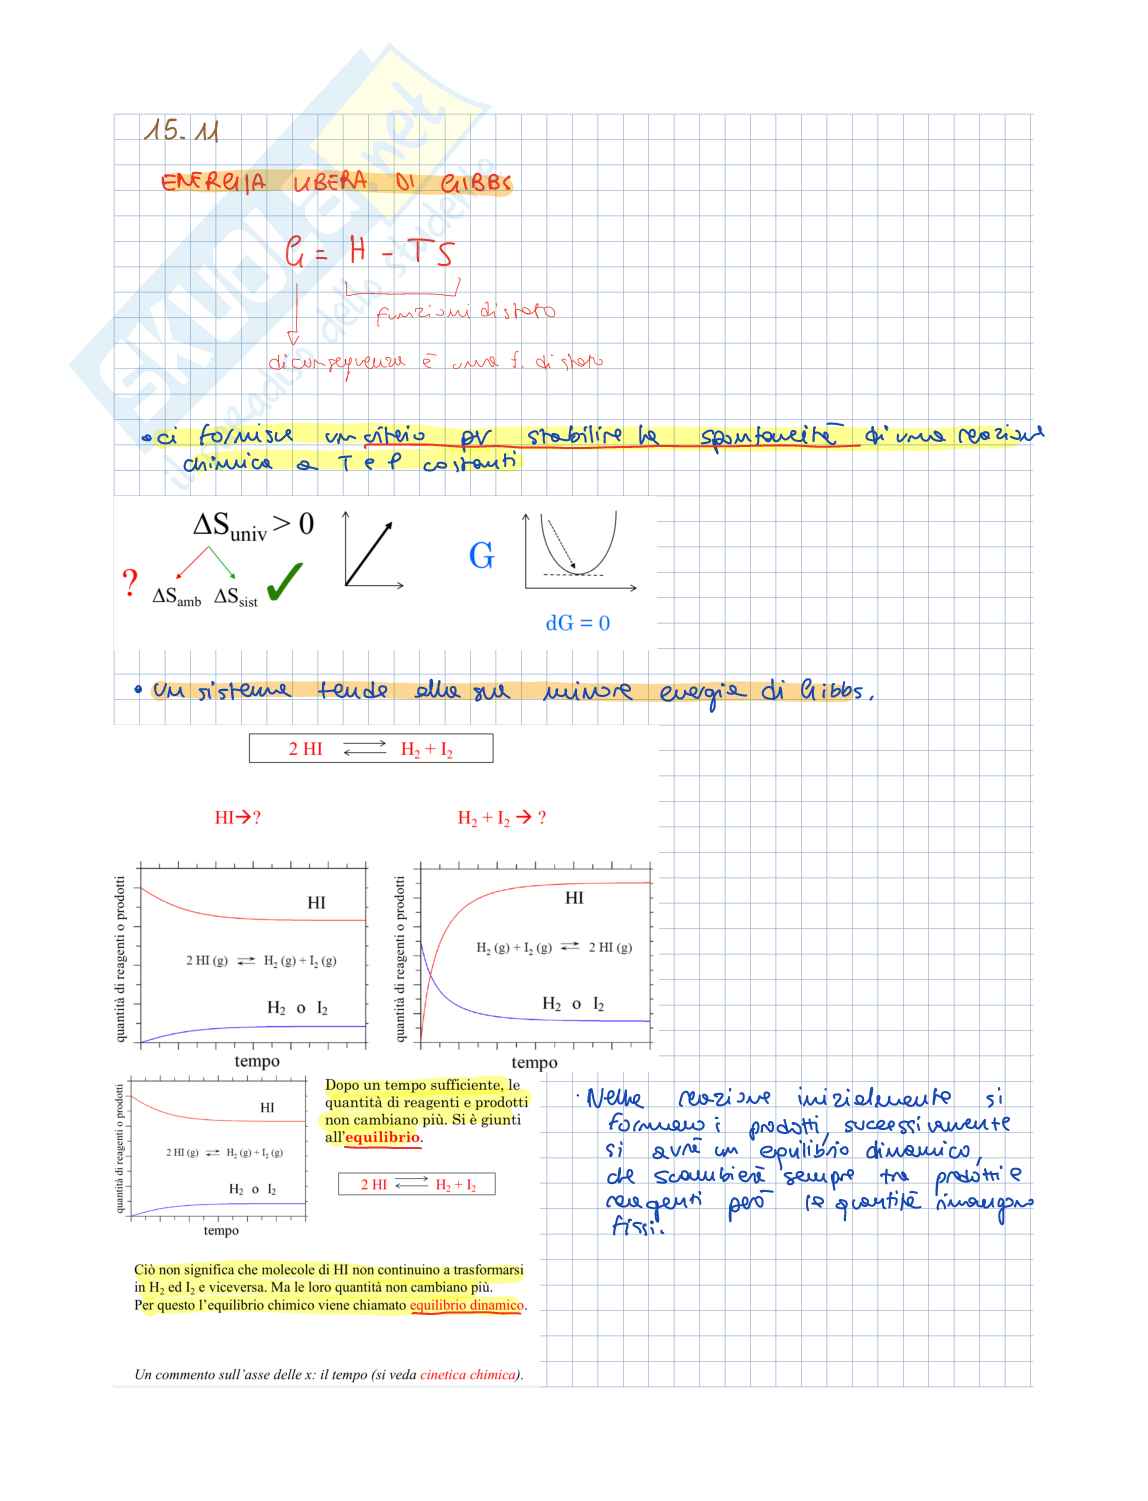 15.11
ENERGIA LIBERA DI GIBBS
G = H - TS
funzioni di stato
di conseguenza è una f. di stato
• ci fornisce un criterio per stabilire la spontaneità di una reazione
chimica a T e P costanti
ΔSuniv > 0
? ΔSamb ΔSsist ✓
G
dG = 0
• Un sistema tende alla sua minore energia di Gibbs.
2 HI ⇄ H₂ + I₂
HI→?
H₂ + I₂ → ?
quantità di reagenti o prodotti
HI
2 HI (g) ⇄ H₂ (g) + I₂ (g)
H₂ o I₂
tempo
quantità di reagenti o prodotti
HI
H₂ (g) + I₂ (g) ⇄ 2 HI (g)
H₂ o I₂
tempo
quantità di reagenti o prodotti
HI
2 HI (g) ⇄ H₂ (g) + I₂ (g)
H₂ o I₂
tempo
Dopo un tempo sufficiente, le
quantità di reagenti e prodotti
non cambiano più. Si è giunti
all'equilibrio.
2 HI ⇄ H₂ + I₂
· Nella reazione inizialmente si
formano i prodotti, successivamente
si avrà un equilibrio dinamico,
che scambierà sempre tra prodotti e
reagenti però le quantità rimangono
fissi.
Ciò non significa che molecole di HI non continuino a trasformarsi
in H₂ ed I₂ e viceversa. Ma le loro quantità non cambiano più.
Per questo l'equilibrio chimico viene chiamato equilibrio dinamico.
Un commento sull'asse delle x: il tempo (si veda cinetica chimica).
SKUOLA.net